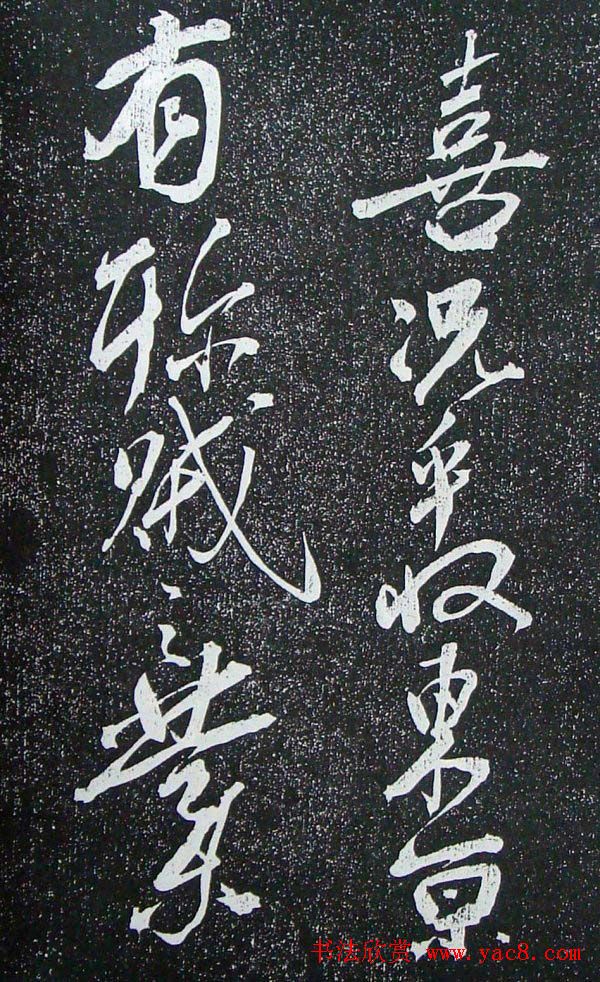 喜况平收東京
有殄賊之業
书法欣赏 www.yac8.com